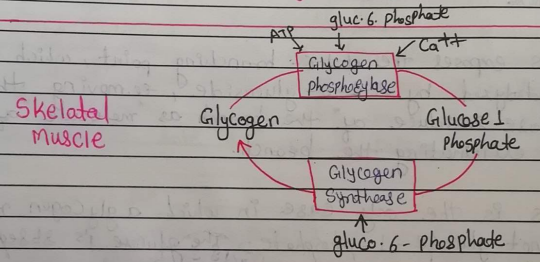 gluc. 6. phosphate
ATP
Ca++
Glycogen
phosphorylase
Skelatal
muscle
Glycogen
Glucose 1
phosphate
Glycogen
Synthease
gluco. 6 - phosphate